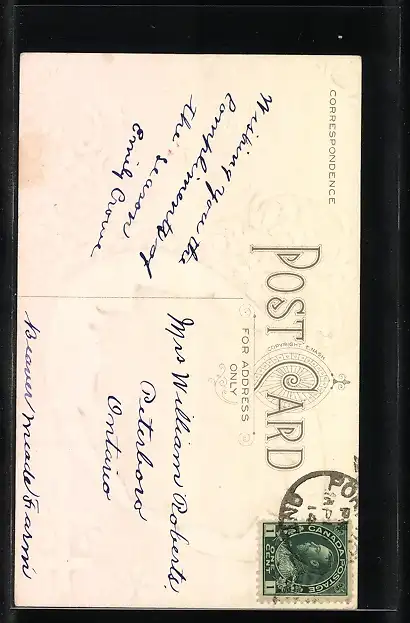 CORRESPONDENCE
POST CARD
COPYRIGHT E. NASH
FOR ADDRESS
ONLY
Wishing you the
Compliments of
the
season
Emily Crowe
Mrs William Roberts,
Peterboro
Ontario
Farm
CANADA POSTAGE
1 CENT 1
PO
AP
14
ON